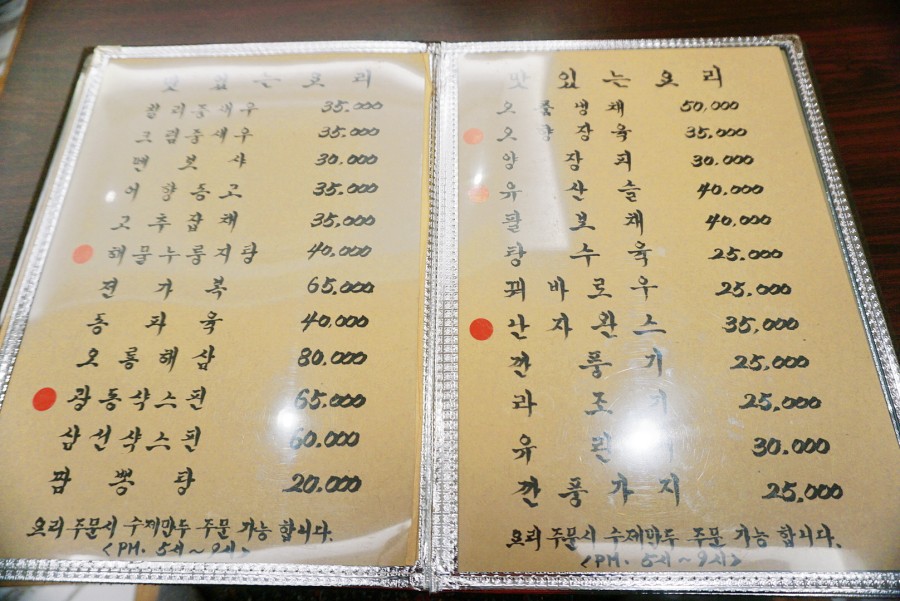 맛있는요리
칠리중새우 35.000
크림중새우 35.000
멘보샤 30.000
어향동고 35.000
고추잡채 35.000
해물누룽지탕 40,000
전가복 65,000
동파육 40,000
오룡해삼 80.000
광동샥스핀 65,000
삼선샥스핀 60.000
짬뽕탕 20.000
요리 주문시 수제만두 주문 가능 합니다.
<PM. 5시~9시>
맛있는요리
오품냉채 50,000
오향장육 35,000
양장피 30.000
유산슬 40,000
팔보채 40,000
탕수육 25.000
꿔바로우 25.000
난자완스 35,000
깐풍기 25,000
라조기 25,000
유린기 30.000
깐풍가지 25,000
요리 주문시 수제만두 주문 가능 합니다.
<PM. 5시~9시>